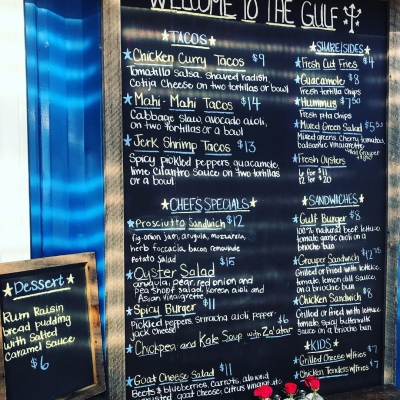 WELCOME TO THE GULF
TACOS
Chicken Curry Tacos $9
Tomatillo salsa, shaved radish,
Cotija Cheese on two tortillas or bowl
Mahi-Mahi Tacos $14
Cabbage slaw, avocado aioli,
on two tortillas or a bowl
Jerk Shrimp Tacos $13
Spicy pickled peppers, guacamole,
lime cilantro sauce on two tortillas
or a bowl
CHEF'S SPECIALS
Prosciutto Sandwich $12
fig onion jam, arugula, mozzarella,
herb foccacia, bacon lemonade
Potato Salad
Oyster Salad $15
arugula, pear, red onion and
pea shoot salad, korean aioli and
Asian Vinaigrette
Spicy Burger $11
Pickled peppers, sriracha aioli, pepper
jack cheese
Chickpea and Kale Soup with Za'atar $6
Goat Cheese Salad $11
Beets & blueberries, carrots, almond
goat cheese, citrus vinaigrette
SHARE/SIDES
Fresh Cut Fries $4
Guacamole $8
Fresh tortilla chips
Hummus $7.50
Fresh pita chips
Mixed Green Salad $5.50
Mixed greens, Cherry tomatoes,
balsamic vinaigrette
*Add Grouper
Fresh Oysters
6 for $11
12 for $20
SANDWICHES
Gulf Burger $8
100% natural beef, lettuce
tomato, garlic aioli on a
brioche bun
Grouper Sandwich $12.75
Grilled or fried with lettuce,
tomato, lemon dill sauce,
on a brioche bun
Chicken Sandwich $8
Grilled or fried with lettuce,
tomato, spicy buttermilk
sauce on a brioche bun
KIDS
Grilled Cheese w/fries $7
Chicken Tenders w/fries $7
Dessert
Rum Raisin
bread pudding
with Salted
Caramel sauce
$6